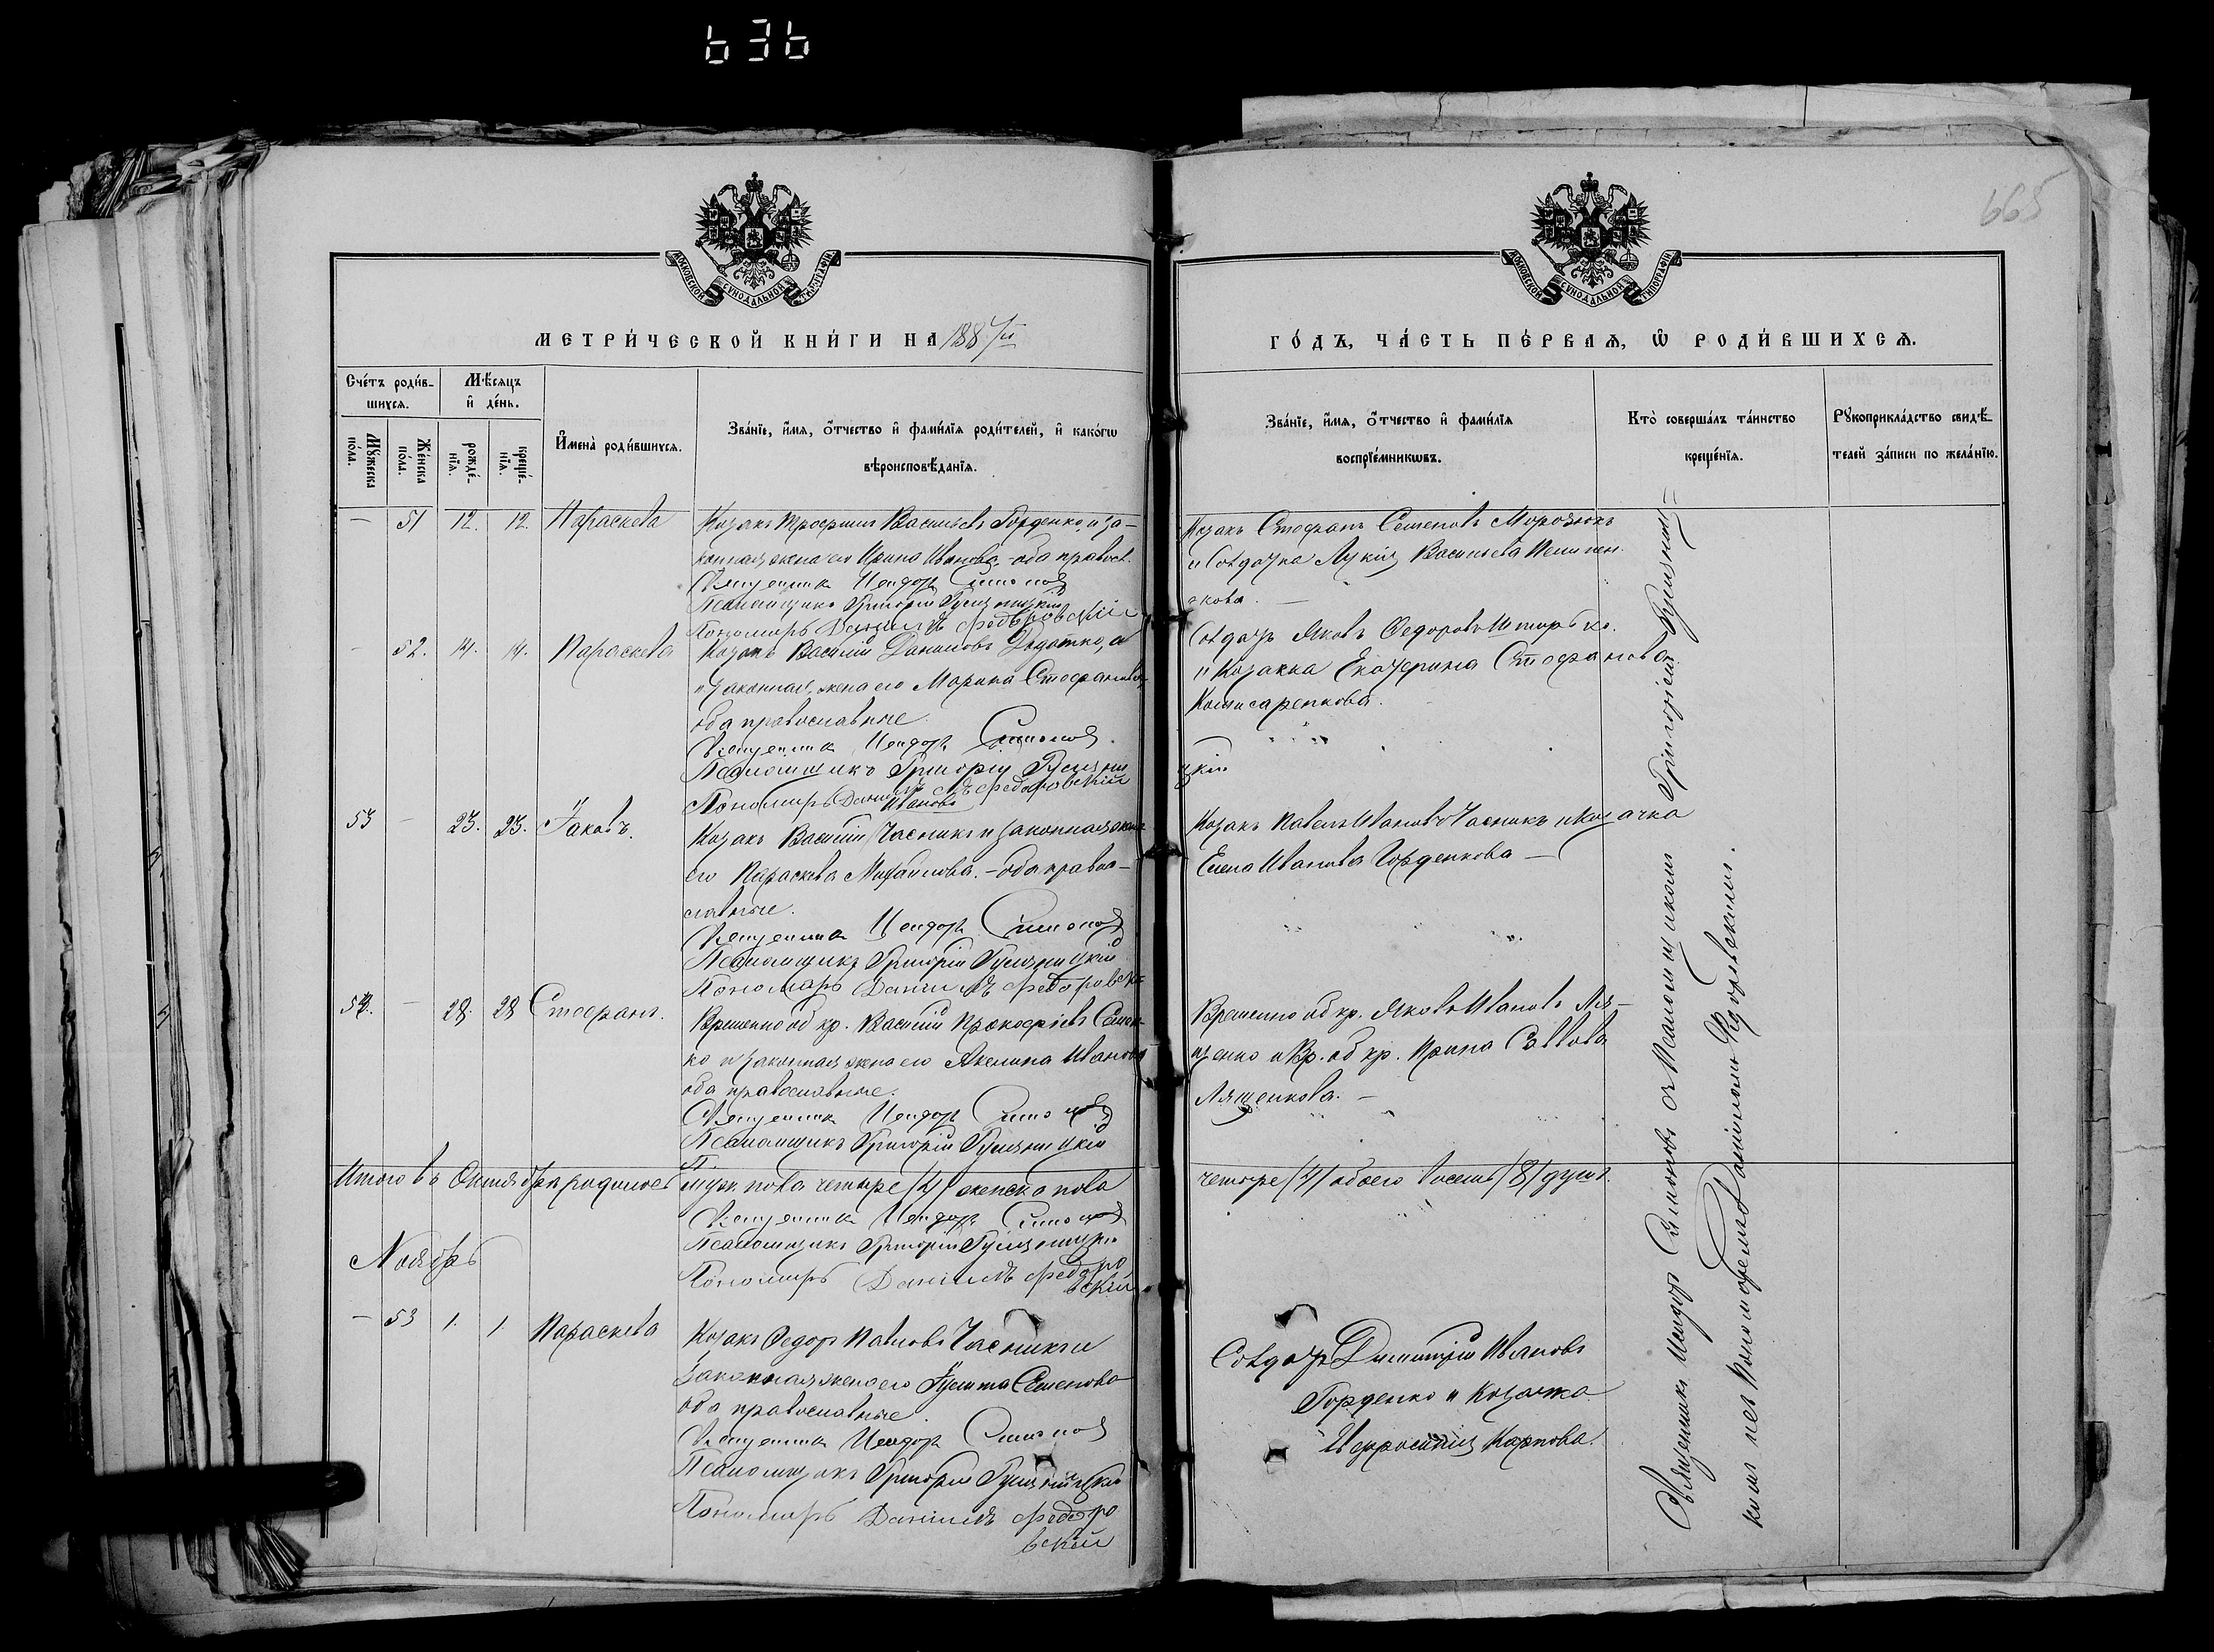 636
665
МОСКОВСКОЙ СѴНОДАЛЬНОЙ ТИПОГРАФІИ
МОСКОВСКОЙ СѴНОДАЛЬНОЙ ТИПОГРАФІИ
МЕТРИ́ЧЕСКОЙ КНИ́ГИ НА 1887й
ГО́ДЪ, ЧА́СТЬ ПЕ́РВАѦ, Ѿ РОДИ́ВШИХСѦ.
Сче́тъ роди́в-
шихсѧ.
Мѣ́сѧцъ
и҆ де́нь.
Мꙋ́жеска
по́ла.
Же́нска
по́ла.
рожде́-
нїѧ.
креще́-
нїѧ.
И҆мена̀ роди́вшихсѧ.
Зва́нїе, и҆́мѧ, о҆́тчество и҆ фами́лїѧ роди́телей, и҆ како́гѡ
вѣроисповѣ́данїѧ.
Зва́нїе, и҆́мѧ, о҆́тчество и҆ фами́лїѧ
воспрїе́мникѡвъ.
Кто̀ соверша́лъ та́инство
креще́нїѧ.
Рꙋкоприкла́дство свидѣ́-
телей за́писи по жела́нїю.
— 51 12. 12. Параскева
Козакъ Трофимъ Васильевъ Горденко, и за-
конная жена его Ирина Иванова, оба правосл.
Священникъ Исидоръ Симонов
Псаломщикъ Григорій
Пономарь Даніилъ Федоровскій
Козакъ Стефанъ Семеновъ
и Солдатка Лукія Васильева
- 52. 14. 14. Параскева
Козакъ Василій Даниловъ и
законная жена его Марина Стефанова,
оба православные.
Священникъ Исидоръ Симонов
Псаломщикъ Григорій
Пономарь Даніилъ Федоровскій
Солдатъ Яковъ Федоровъ
и Козачка Екатерина Стефанова
Комисаренкова.
цкій
53 — 23. 23. Іаковъ.
Ивановъ
Козакъ Василій Часникъ и законная жена
его Параскева Михайлова. — оба право-
славные.
Священникъ Исидоръ Симонов
Псаломщикъ Григорій
Пономарь Даніилъ Федоровск
Козакъ Павелъ Ивановъ Часникъ и Козачка
Елена Иванова Горденкова —
54. — 28. 28 Стефанъ.
Временно об кр. Василій Прокофіевъ Семен-
ко и законная жена его Акелина Иванова
оба православные.
Священникъ Исидоръ Симонов
Псаломщикъ Григорій
П.
Временно об кр. Яковъ Ивановъ Ля-
щенко и Вр. об кр. Ирина Саввова
Лященкова. —
Итого въ Октябрѣ родилось муж. пола четыре /4/ женска пола
четыре /4/ обоего восемь /8/ душъ.
Священникъ Исидоръ Симонов
Псаломщикъ Григорій
Пономарь Даніилъ Федоро
вскій
Ноябрь
— 53 1. 1 Параскева
Козакъ Федоръ Павловъ Часникъ и
законная жена его Семенова
оба православные.
Священникъ Исидоръ Симонов
Псаломщикъ Григорій
Пономарь Даніилъ Федоро
вскій
Солдатъ Димитрій Ивановъ
Горденко и Козачка
Евфросинія Карпова.
Священникъ Исидоръ Симоновъ съ Псаломщикомъ Григоріемъ
Пономаремъ Даніиломъ Федоровскимъ.